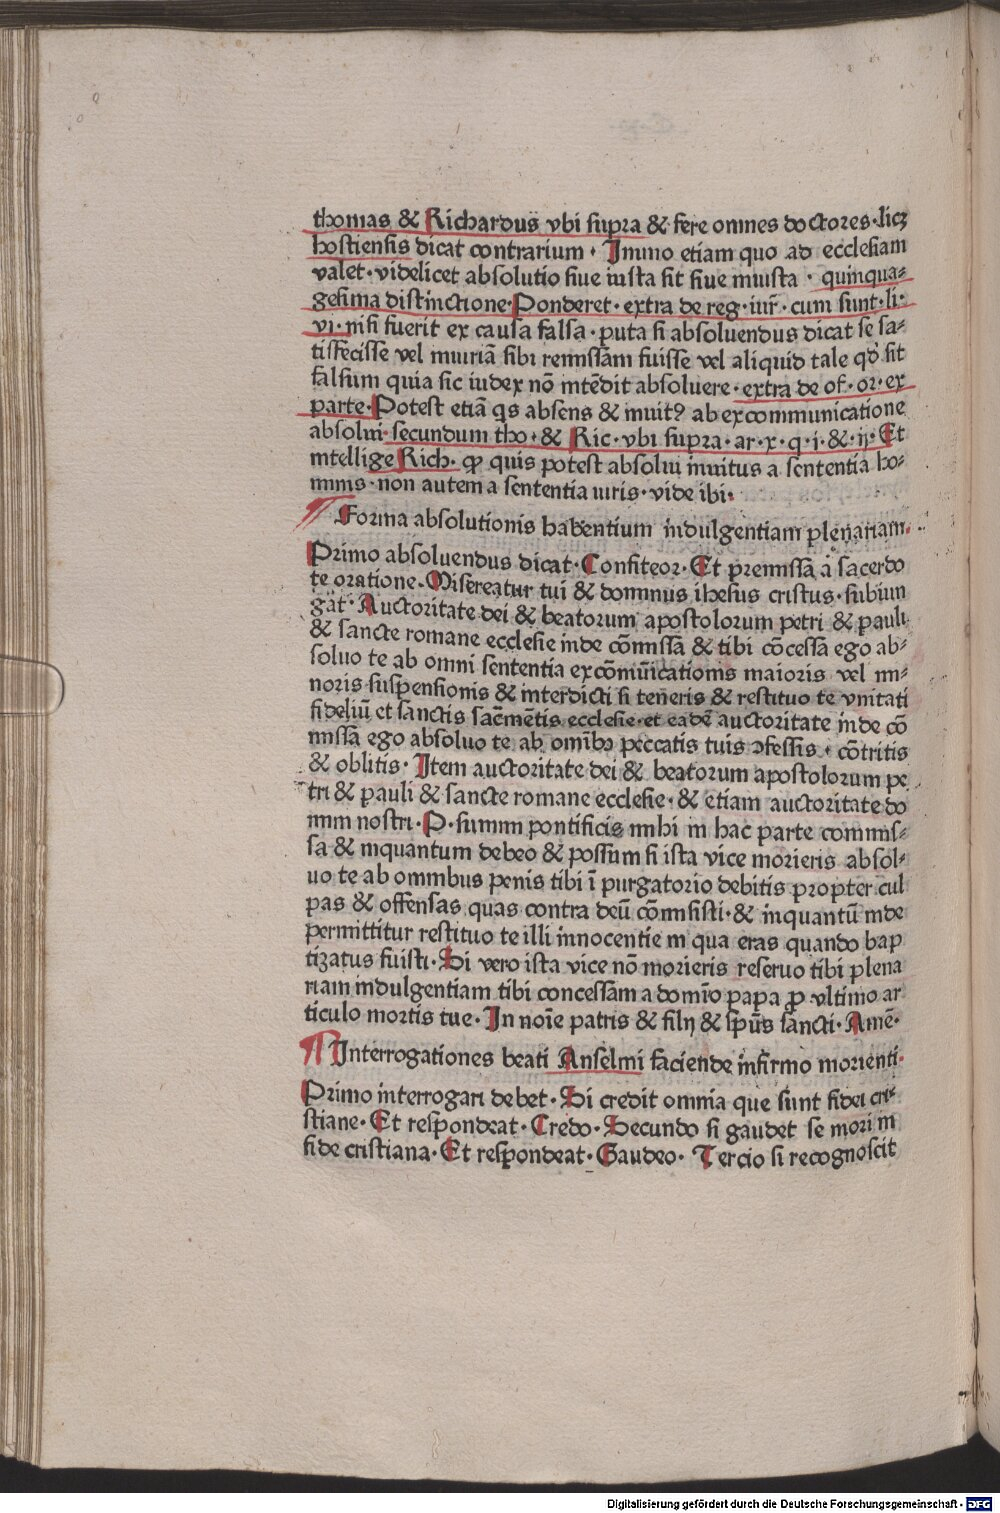 thomas & Richardus vbi supra & fere omnes doctores·licꝫ
hostiensis dicat contrarium· Immo etiam quo ad ecclesiam
valet·videlicet absolutio siue iusta sit siue iniusta· quinqua⸗
gesima distinctione·Ponderet·extra de reg·iur̄·cum sunt·li·
vi·nisi fuerit ex causa falsa·puta si absoluendus dicat se sa⸗
tisfecisse vel iniuriā sibi remissam fuisse vel aliquid tale qđ sit
falsum quia sic iudex nō intēdit absoluere·extra de of·or·ex
parte·Potest etiā qs absens & inuitꝰ ab excommunicatione
absolui·secundum tho·& Ric·vbi supra·ar·x·q·i·& ij·Et
intellige Rich·ꝙ quis potest absolui inuitus a sententia ho⸗
minis·non autem a sententia iuris·vide ibi·
Forma absolutionis habentium indulgentiam plenariam·
Primo absoluendus dicat·Confiteor·Et premissa a sacerdo
te oratione·Misereatur tui & dominus ihesus cristus·subiun
gat·Auctoritate dei & beatorum apostolorum petri & pauli
& sancte romane ecclesie inde cōmissa & tibi cōcessa ego ab⸗
soluo te ab omni sententia excōmūicationis maioris vel mi⸗
noris suspensionis & interdicti si teneris & restituo te vnitati
fideliū et sanctis sacmētis ecclesie·et eadē auctoritate inde cō
missa ego absoluo te ab omībꝫ peccatis tuis ↄfessis·cōtritis
& oblitis· Item auctoritate dei & beatorum apostolorum pe
tri & pauli & sancte romane ecclesie·& etiam auctoritate do
mini nostri·P·summi pontificis mihi in hac parte commis⸗
sa & inquantum debeo & possum si ista vice morieris absol⸗
uo te ab omnibus penis tibi ī purgatorio debitis propter cul
pas & offensas quas contra deū cōmisisti·& inquantū inde
permittitur restituo te illi innocentie in qua eras quando bap
tizatus fuisti·Si vero ista vice nō morieris reseruo tibi plena
riam indulgentiam tibi concessam a domīo papa ꝓ vltimo ar
ticulo mortis tue·In noīe patris & filij & spūs sancti·Amē·
Interrogationes beati Anselmi faciende infirmo morienti·
Primo interrogari debet·Si credit omnia que sunt fidei cri⸗
stiane·Et respondeat·Credo·Secundo si gaudet se mori in
fide cristiana·Et respondeat·Gaudeo· Tercio si recognoscit
Digitalisierung gefördert durch die Deutsche Forschungsgemeinschaft - DFG